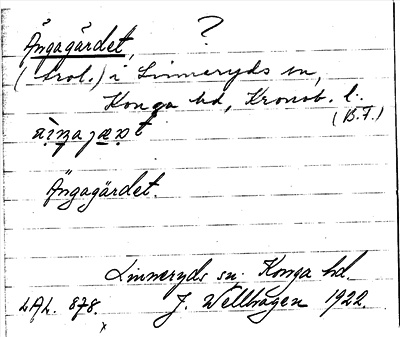 ?
Ängagärdet,
(Srol.) i Linneryds sn,
Konga hd, Kronob. l.
(B.F.)
Ängagärdet.
Linneryds sn. Konga hd.
LAL. 878. J. Wellhagen 1922.
x